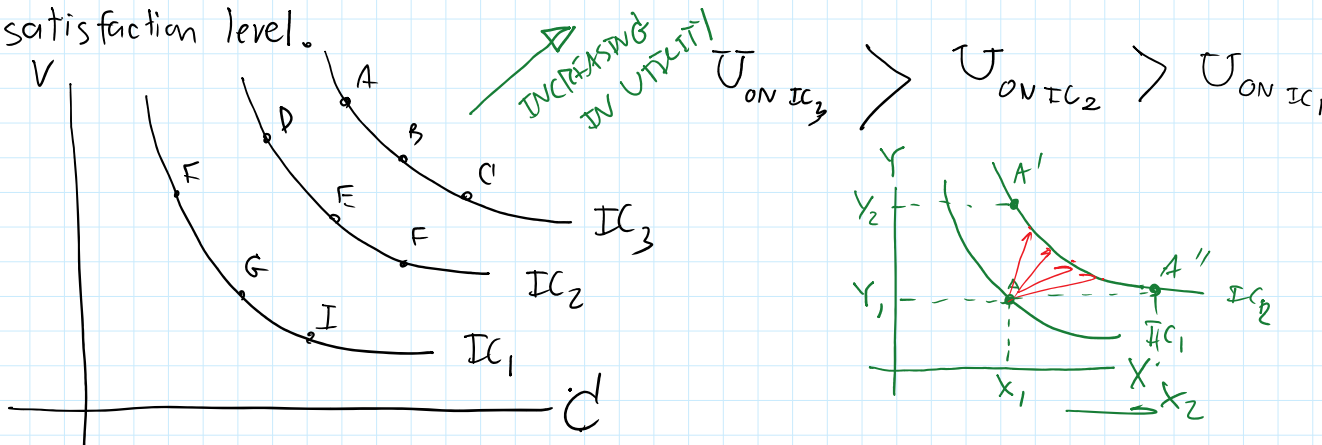 satisfaction level.
V
A
B
C
IC3
D
E
F
IC2
F
G
I
IC1
C
INCREASING
IN UTILITY
U ON IC3 > U ON IC2 > U ON IC1
Y
Y2
A'
Y1
A
A"
IC2
IC1
X1
X
X2